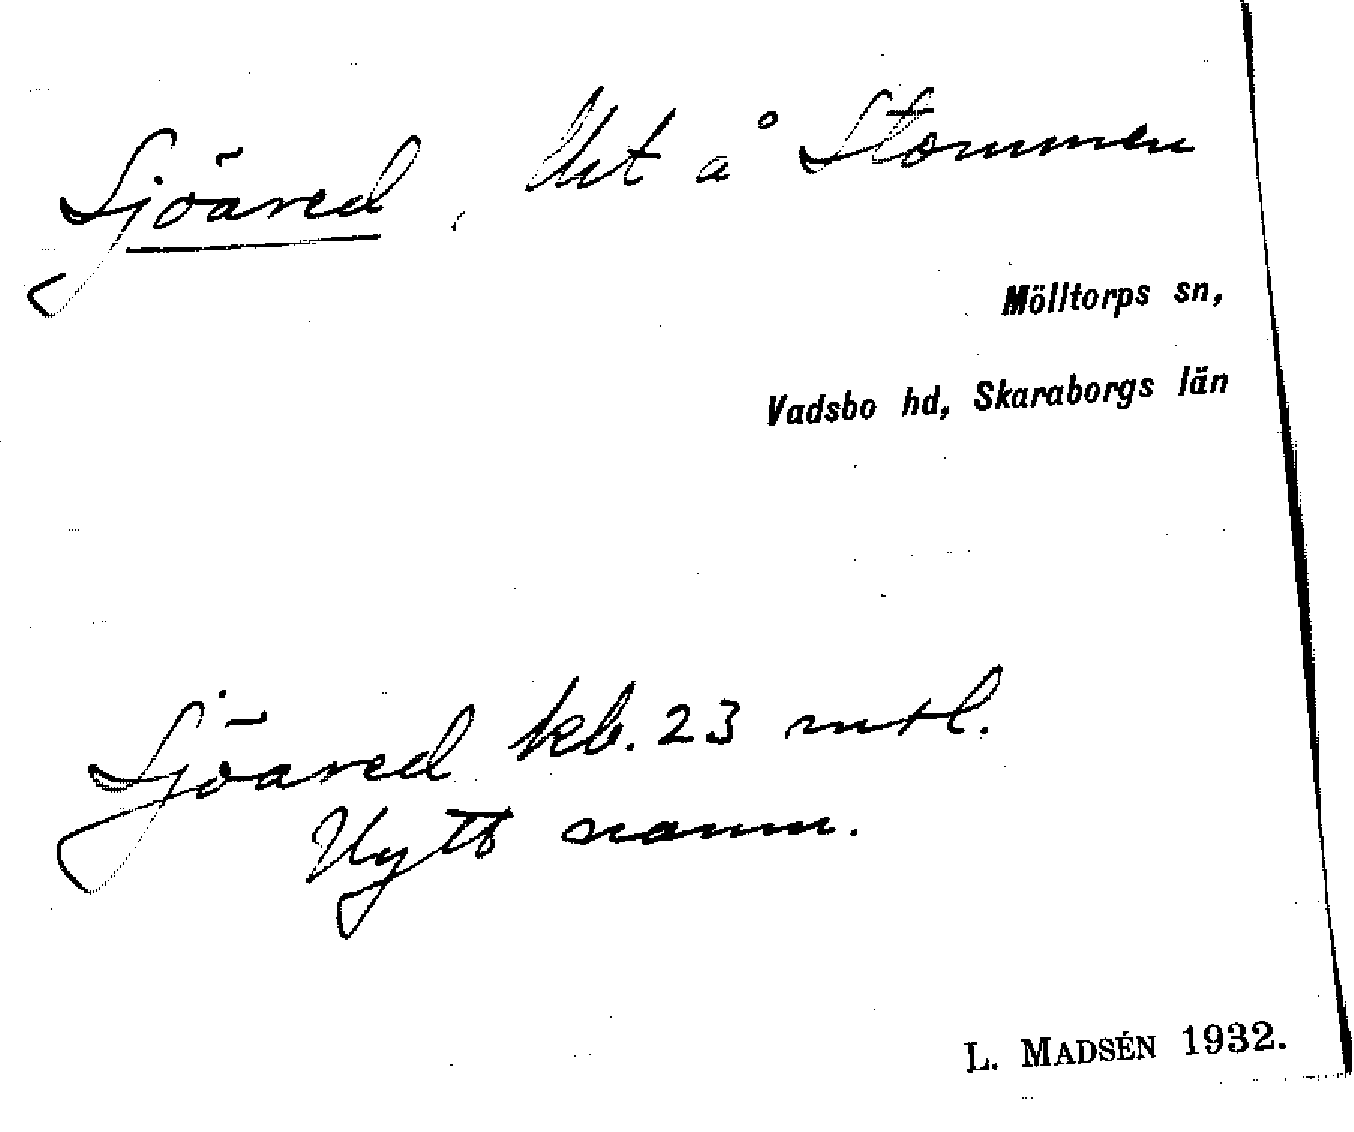 Sjöared, Ukt å Stommen
Mölltorps sn,
Vadsbo hd, Skaraborgs län
Sjöared kb. 23 mtl.
Nytt namn.
L. MADSÉN 1932.